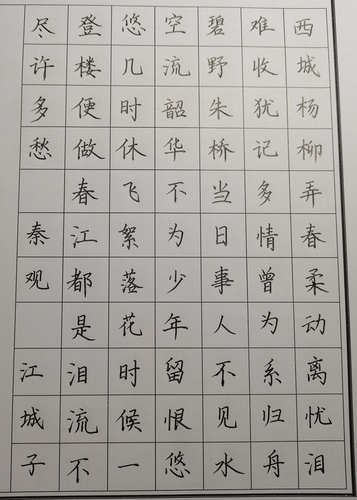 西城杨柳弄春柔动离忧泪
难收犹记多情曾为系归舟
碧野朱桥当日事人不见水
空流韶华不为少年留恨悠
悠几时休飞絮落花时候一
登楼便做春江都是泪流不
尽许多愁 秦观 江城子